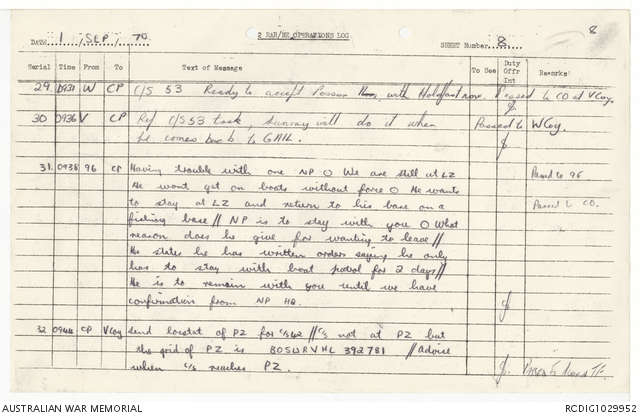 8
2 RAR/NZ OPERATIONS LOG
DATE 1 / SEP / 70 SHEET Number 8
Serial Time From To Text of Message To Use Duty Offr Int Remarks
29. 0931 W CP C/S 53 Ready to accept Person with Holdfast now. Passed to CO at V Coy.
30 0936 V CP Ref C/S 53 task, Sunray will do it when Passed to W Coy.
he comes back to GAIL.
31. 0938 96 CP Having trouble with one NP O We are still at LZ Passed to 96
He wont get on boats without force O He wants
to stay at LZ and return to his base on a Passed to CO.
fishing base // NP is to stay with you O What
reason does he give for wanting to leave //
He states he has written orders saying he only
has to stay with boat patrol for 2 days //
He is to remain with you until we have
confirmation from NP HQ.
32 0944 CP V Coy Send locstat of PZ for C/S 42 // C/S not at PZ but
the grid of PZ is BOSWRVHL 392781 // Advise
when C/S reaches PZ.
AUSTRALIAN WAR MEMORIAL RCDIG1029952